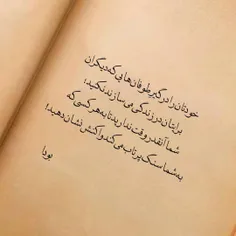 خودتان را درگیر طوفان‌هایی که دیگران
برایتان در زندگی می‌سازند نکنید؛
شما آنقدر وقت ندارید تا به هر کسی که
به شما سنگ پرتاب می‌کند واکنش نشان دهید!
بودا